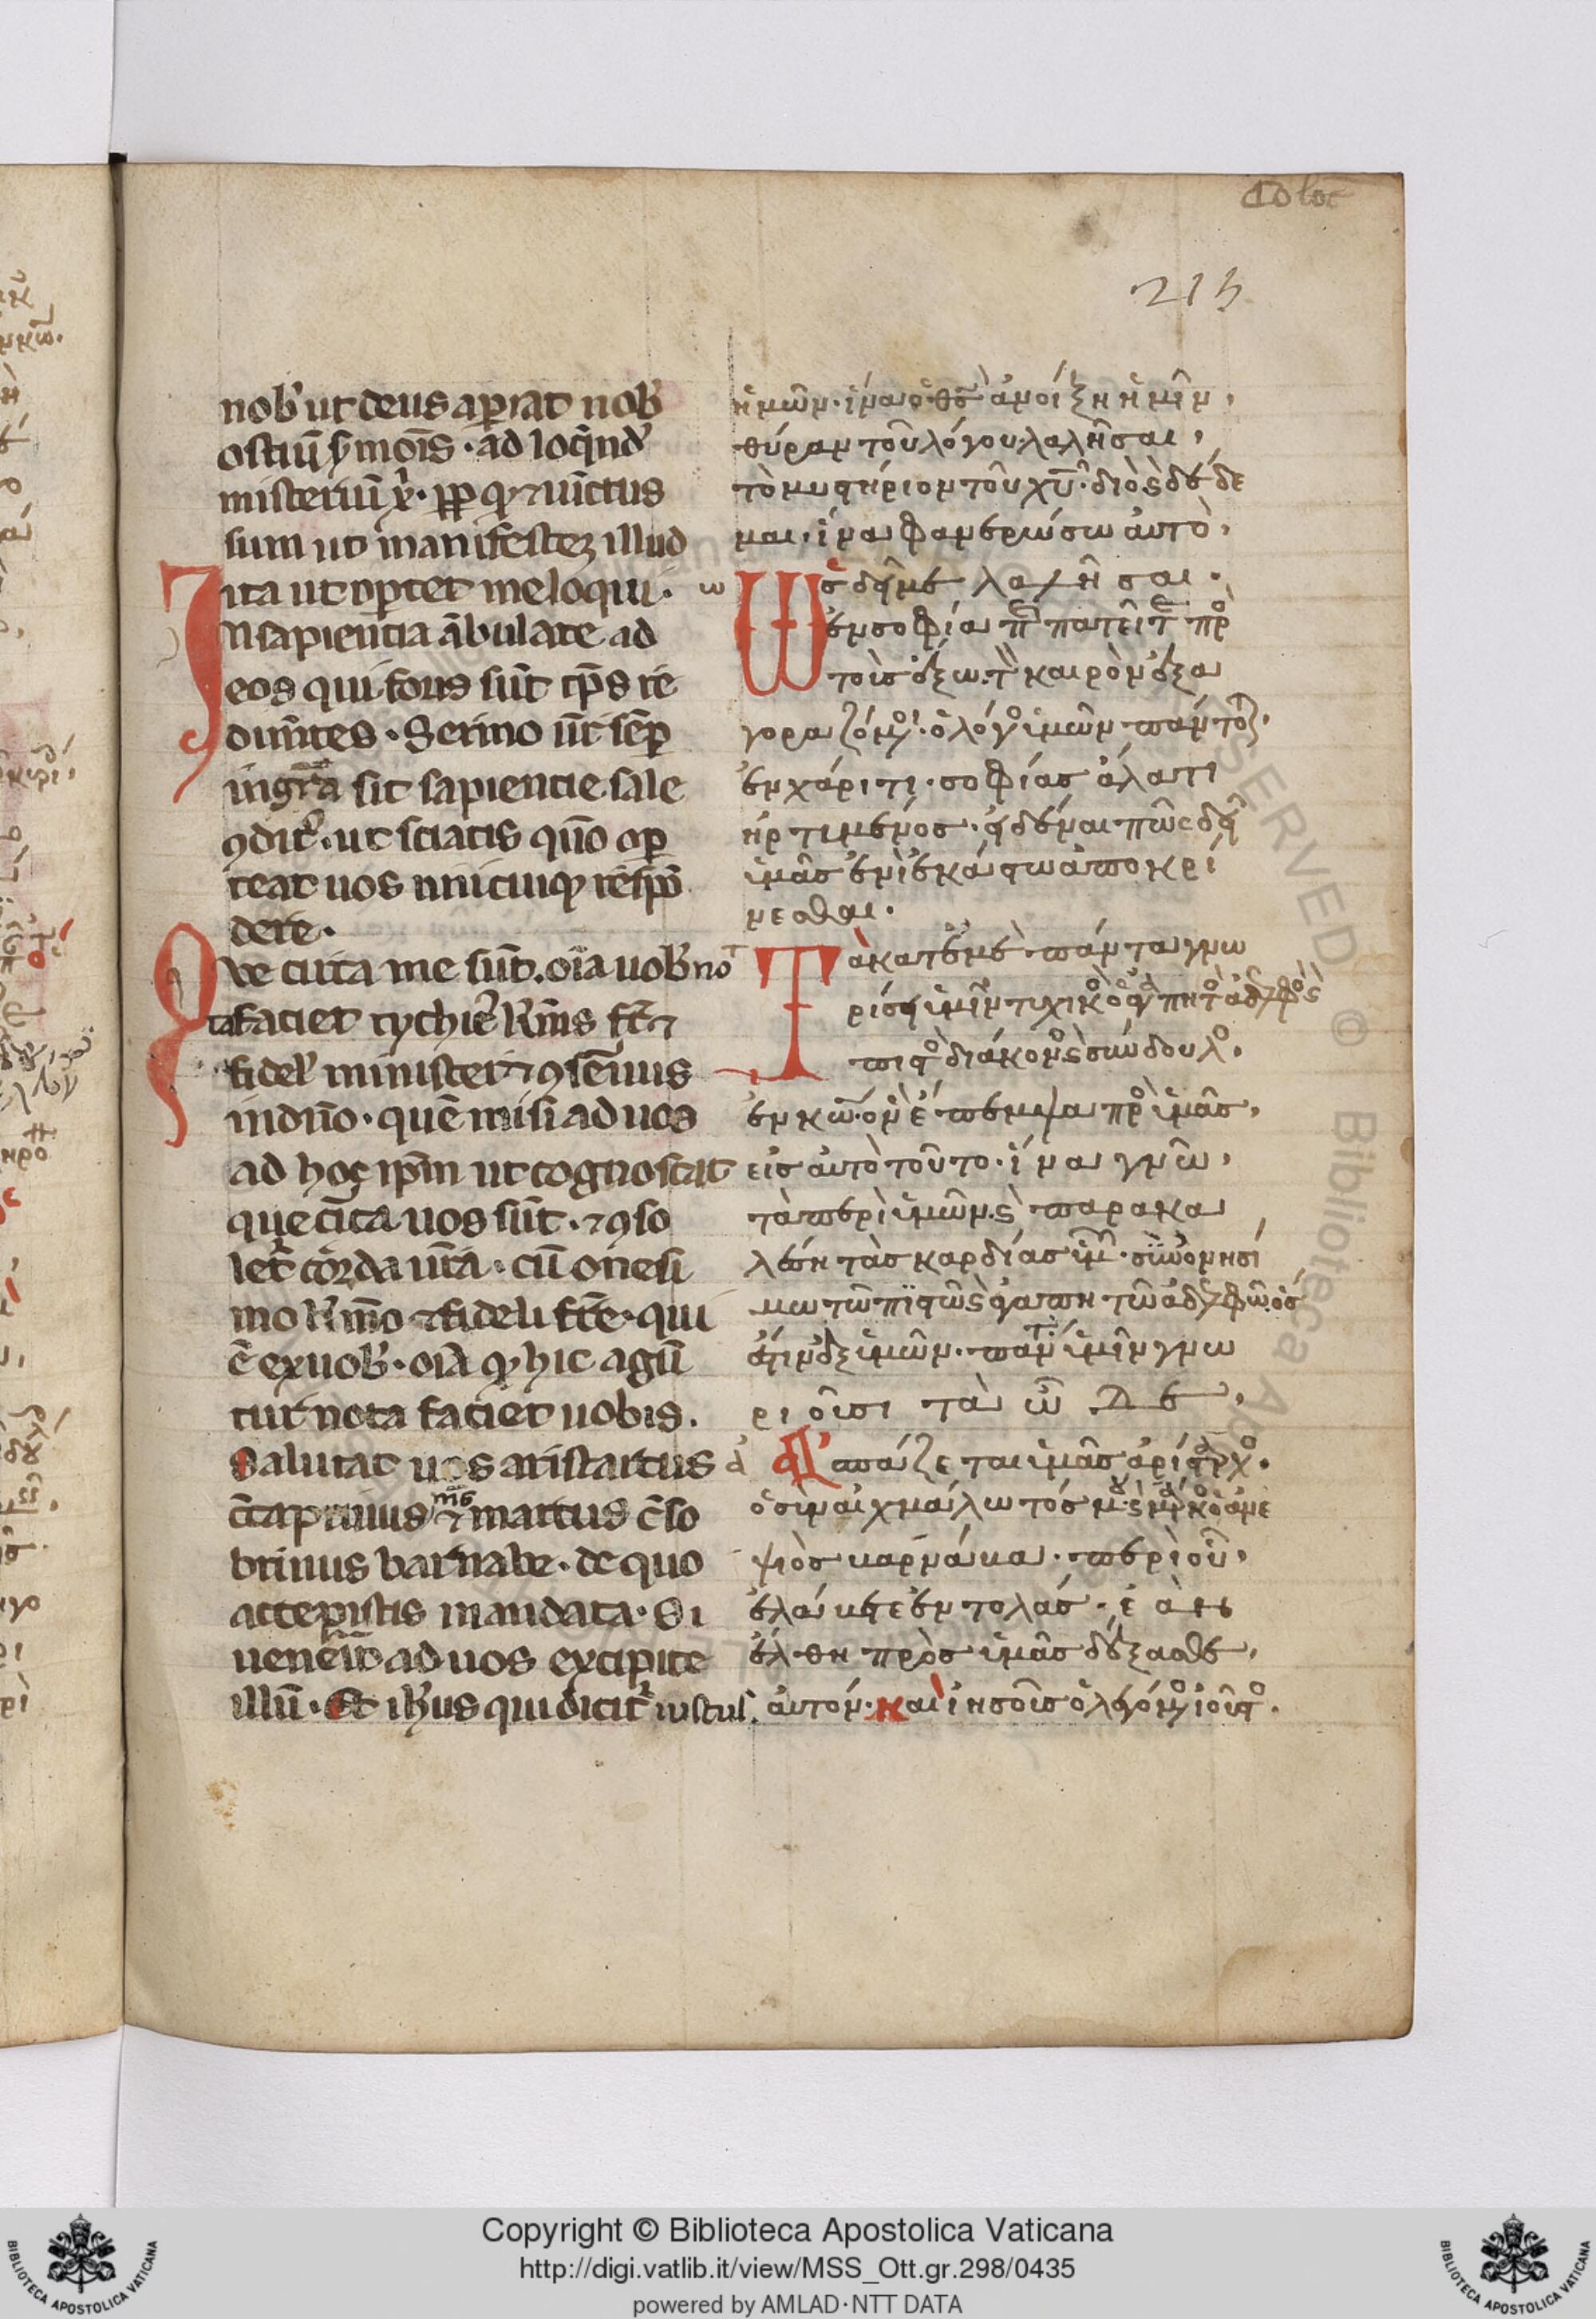 Coloc
215
nob' ut deus aperiat nob'
ostiū ẜmonis · ad loq̄nd'
misteriū x̄p̄i · ꝓp̄ qd̄ ⁊ uīctus
sum ut manifestē illud
ita ut oportet me loqui ·
In sapientia ābulate ad
eos qui foris sūt tp̄s re
dimētes · Sermo ūr sēp
in gr̄a sit sapientie sale
ꝯdit' · ut sciatis quō opor
teat uos unicuiq3 respō
dere ·
Que circa me sūt · oīa uob' no
ta faciet tychic' kr̄mus fr̄ ⁊
fidel' minister ⁊ ꝯseruus
in dn̄o · quē misi ad uos
ad hoc ip̄m ut cognoscat
que circa uos sūt · ⁊ ꝯso
let' corda ur̄a · cū onesi
mo kr̄mo ⁊ fideli fr̄e · qui
ē ex uob' · oīa q̄ hic agū
tur nota faciet uobis ·
Salutat uos aristarcus
ꝯcaptiuus m̄s ⁊ marcus ꝯso
brinus barnabe · de quo
accepistis mandata · Si
uenerit ad uos excipite
illū · Et ih̄us qui dicit' iustus ·
ἡμῶν · ἵνα ὁ θς̄ ἀνοίξη ἡμῖν,
θύραν τοῦ λόγου · λαλῆσαι,
τὸ μυστήριον τοῦ χῡ · διὸ ϗ δέδε
μαι · ἵνα φανερώσω ἀυτὸ,
ὡς δεῖ με λαλῆσαι ·
ἐν σοφία περιπατεῖτε πρὸ
τοὶσ ἔξω · τὸν καιρὸν ἐξα
γοραζόμενοι · ὁ λόγος ἱμῶν πάντοτε ·
ἐν χάριτι · σοφίασ ἅλατι
ἠρτιμένοσ · ἠδέναι πῶς δεῖ
ἱμᾶσ ἑνὶ ἑκάστω ἀποκρί
νεσθαι ·
Τὰ κατ ἐμὲ πάντα γνω
ρίσει ἱμῖν τιχικὸς ὁ ἀγαπητὸς ἀδελφὸς ϗ
πιστὸς διάκονος ϗ σύνδουλος ·
ἐν κω̄ · ὃν ἔπεμψα πρὸ ἱμᾶσ,
εἰσ ἀυτὸ τοῦτο · ἵνα γνῶ,
τὰ περὶ ἱμῶν · ϗ παρακα
λέση τὰσ καρδίασ ἱμῶν · σὺν ὀνησί
μω τῶ πιστῶ ϗ ἀγαπη τῶ ἀδελφῶ · ὅσ
ἐστιν ἐξ ἱμῶν · πάντα ἱμῖν γνω
ριοῦσι τὰ ὧδε ·
Ἀσπάζεται ἱμᾶσ ἀρίσταρχος ·
ὁ σιναιχμάλωτόσ μου · ϗ μάρκος ὁ ἀνε
ψιὸσ βαρνάβα · περὶ οὗ,
ἐλάβετε ἐντολάσ · ἐὰν
ἔλθη πρὸσ ἱμᾶσ δέξασθε,
ἀυτόν · και ἰησοῦσ ὁ λεγόμενος ἰοῦστος ·
Copyright © Biblioteca Apostolica Vaticana
http://digi.vatlib.it/view/MSS_Ott.gr.298/0435
powered by AMLAD·NTT DATA
BIBLIOTECA APOSTOLICA VATICANA
BIBLIOTECA APOSTOLICA VATICANA